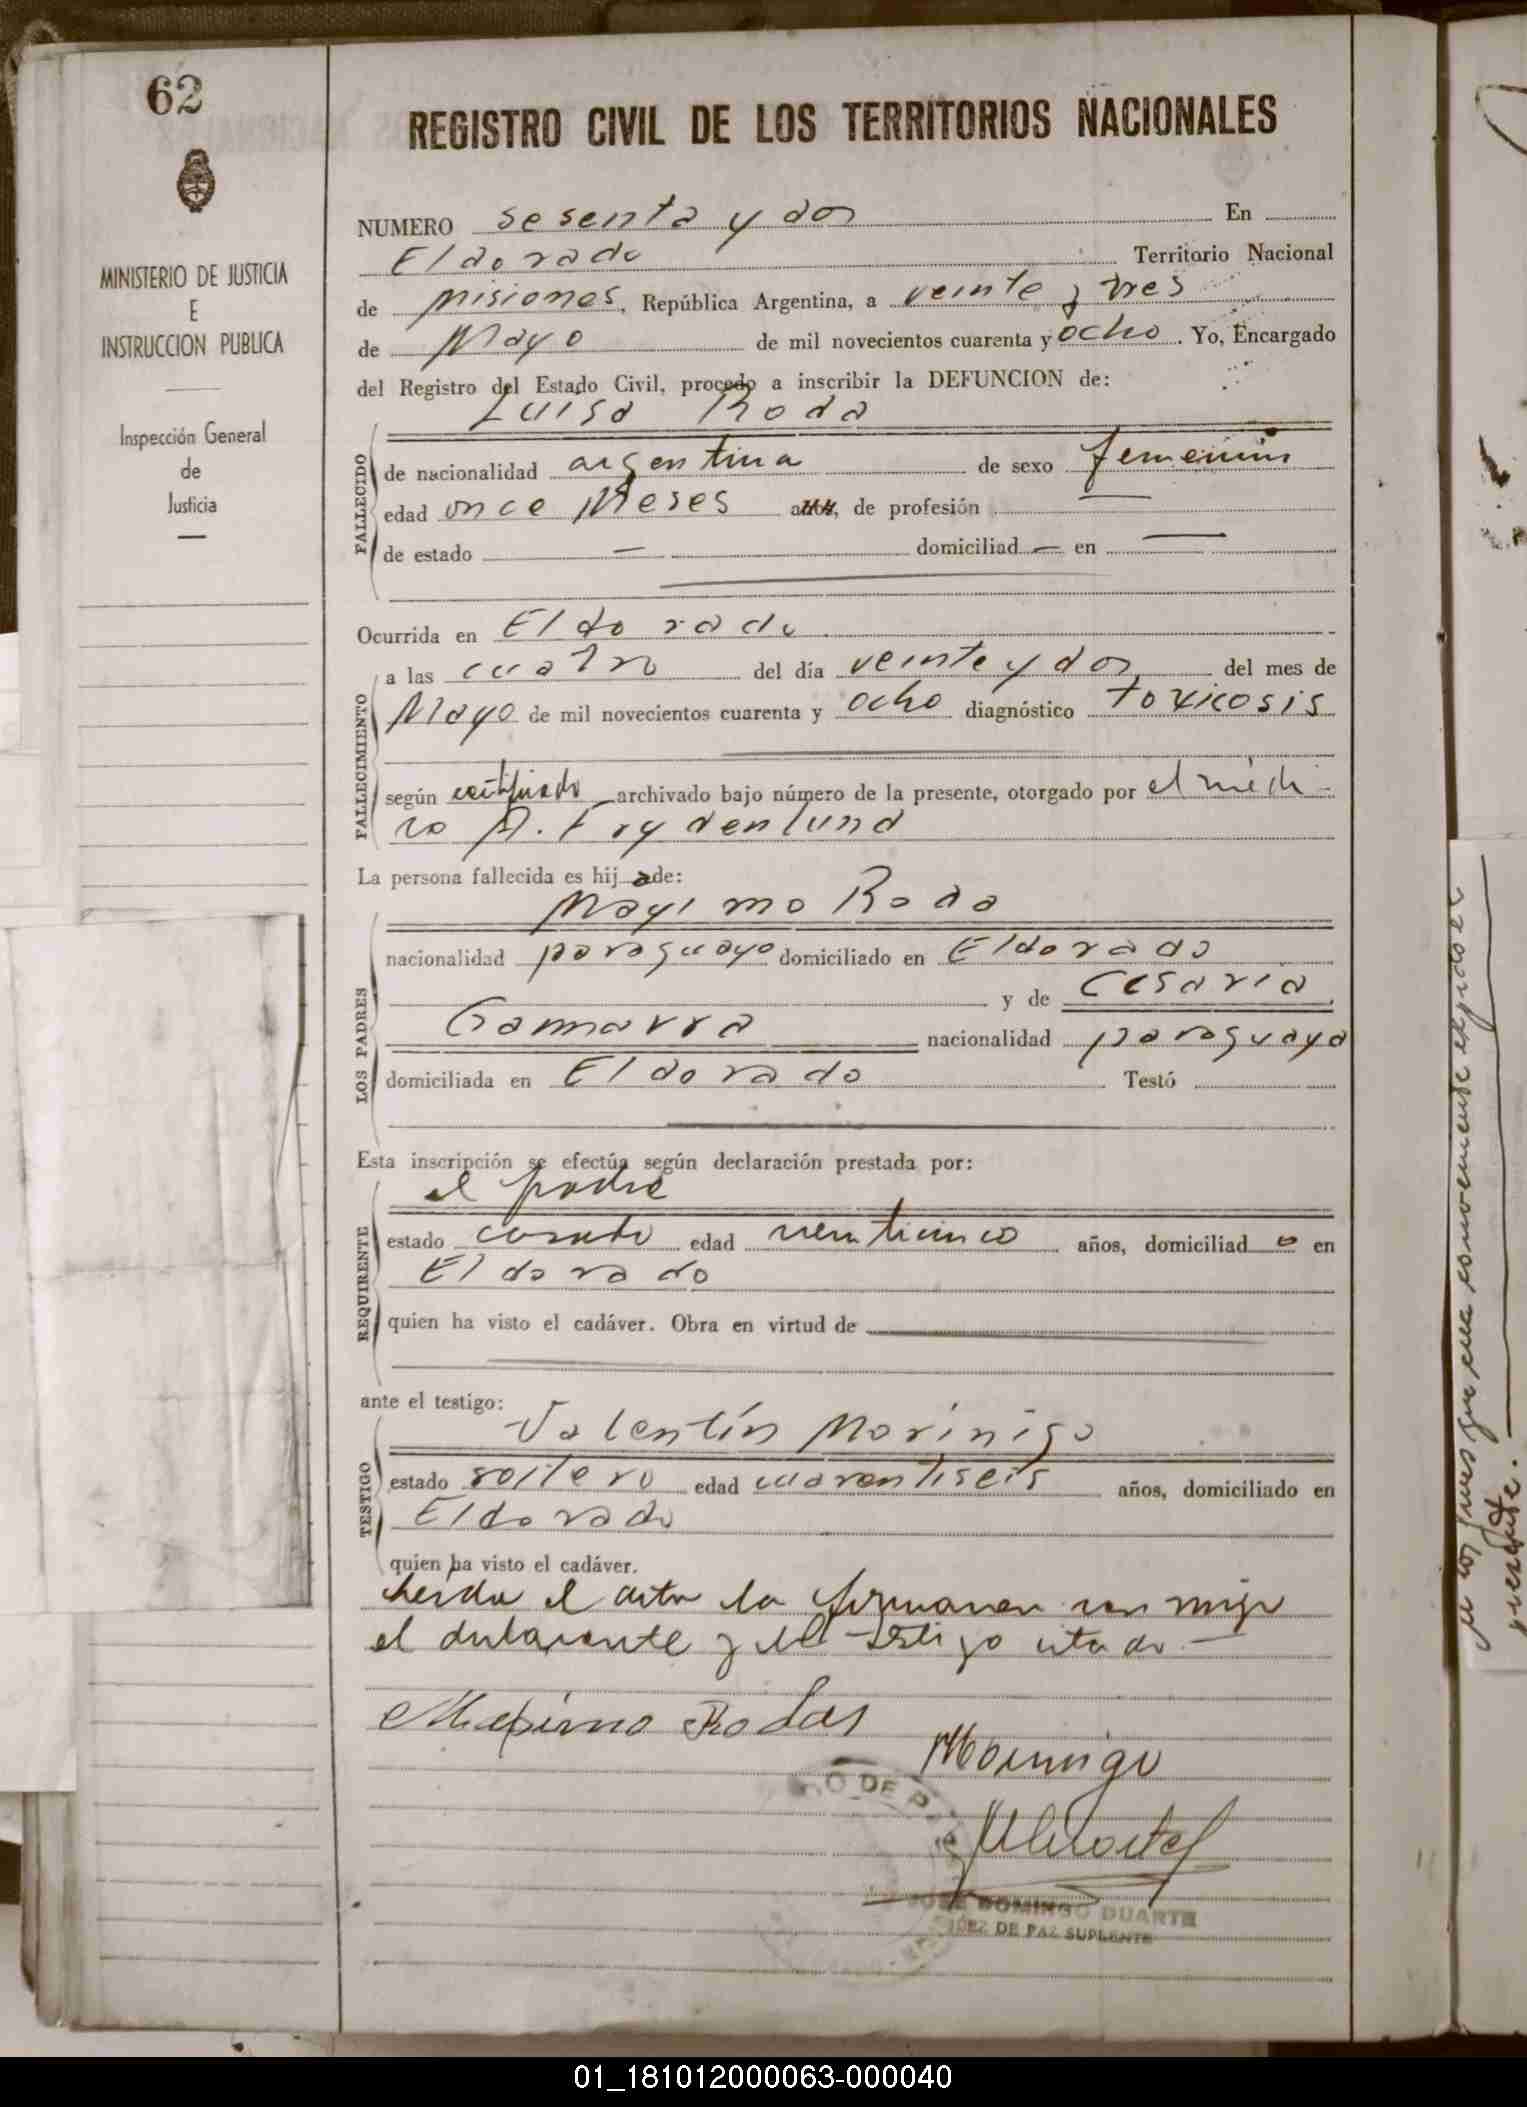 62
MINISTERIO DE JUSTICIA
E
INSTRUCCION PUBLICA
Inspección General
de
Justicia
REGISTRO CIVIL DE LOS TERRITORIOS NACIONALES
NUMERO sesenta y dos En
Eldorado Territorio Nacional
de Misiones, República Argentina, a veinte y tres
de Mayo de mil novecientos cuarenta y ocho. Yo, Encargado
del Registro del Estado Civil, procedo a inscribir la DEFUNCION de:
Luisa Roda
FALLECIDO
de nacionalidad argentina de sexo femenino
edad once Meses años, de profesión —
de estado — domiciliad — en —
Ocurrida en Eldorado
FALLECIMIENTO
a las cuatro del día veinte y dos del mes de
Mayo de mil novecientos cuarenta y ocho diagnóstico toxicosis
según certificado archivado bajo número de la presente, otorgado por el médi-
co A. Frydenlund
La persona fallecida es hija de:
LOS PADRES
Maximo Roda
nacionalidad paraguayo domiciliado en Eldorado
y de Cesaria
Gamarra nacionalidad paraguaya
domiciliada en Eldorado Testó
Esta inscripción se efectúa según declaración prestada por:
REQUIRENTE
el padre
estado casado edad veinticinco años, domiciliado en
Eldorado
quien ha visto el cadáver. Obra en virtud de
ante el testigo:
TESTIGO
Valentín Morinigo
estado soltero edad cuarentiseis años, domiciliado en
Eldorado
quien ha visto el cadáver.
Leida el acta la firmaron con migo
el declarante y el testigo citado.—
Maximo Rodas
Morinigo
JOSE DOMINGO DUARTE
JUEZ DE PAZ SUPLENTE
presente.
01_181012000063-000040